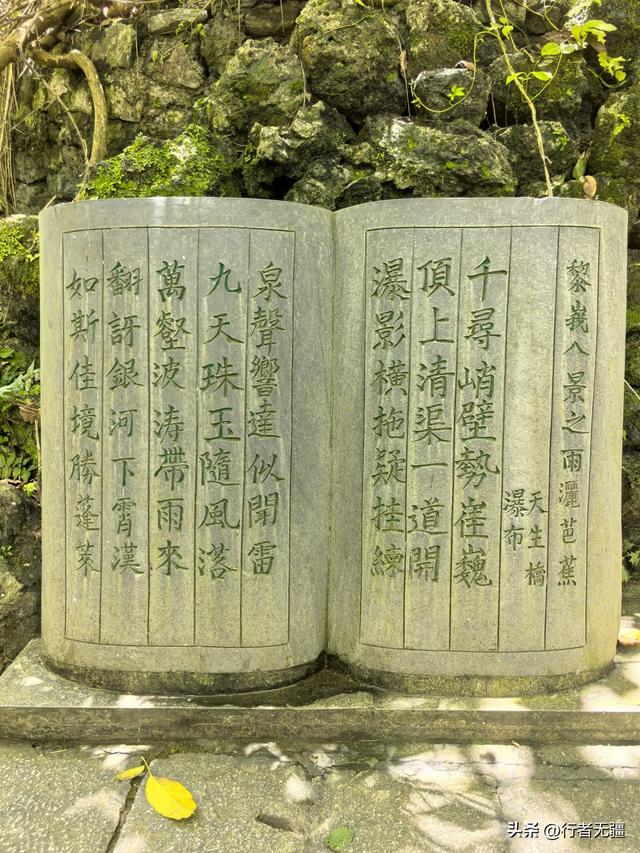 黎峩八景之雨灑芭蕉
天生橋
瀑布
千尋峭壁勢崔巍
頂上清渠一道開
瀑影橫拖疑挂練
泉聲響達似聞雷
九天珠玉隨風落
萬壑波涛帶雨來
翻訝銀河下霄漢
如斯佳境勝蓬萊
头条 @行者无疆